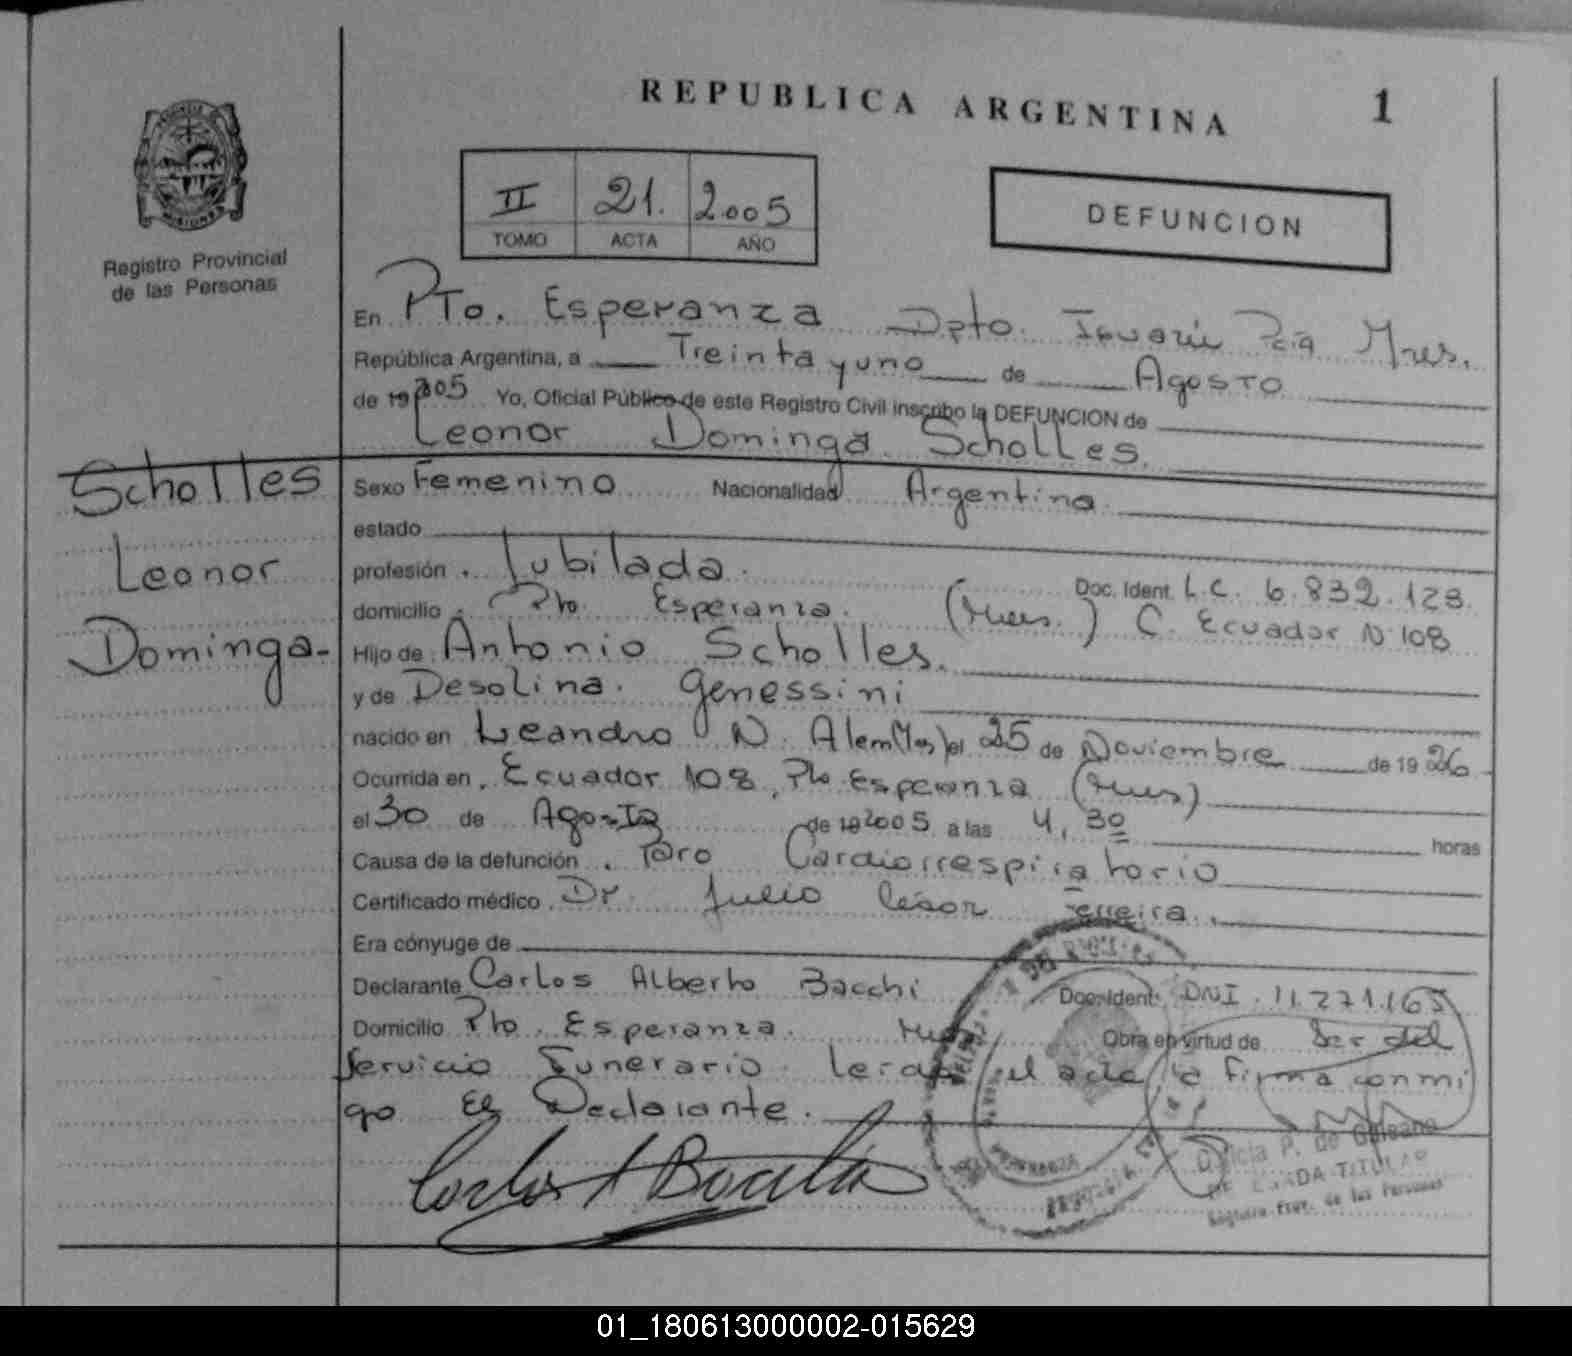 REPUBLICA ARGENTINA 1
II 21. 2005
TOMO ACTA AÑO
DEFUNCION
Registro Provincial
de las Personas
En Pto. Esperanza Dpto. Iguazú Pcia Mnes.
República Argentina, a Treinta y uno de Agosto
de 19 2005 Yo, Oficial Público de este Registro Civil inscribo la DEFUNCION de
Leonor Dominga Scholles.
Scholles
Leonor
Dominga-
Sexo Femenino Nacionalidad Argentina
estado
profesión Jubilada. Doc. Ident. L.C. 6.832.123
domicilio Pto. Esperanza. (Mnes.) C. Ecuador N 108
Hijo de Antonio Scholles.
y de Desolina. Genessini
nacido en Leandro N. Alem (Mnes) el 25 de Noviembre de 1926
Ocurrida en Ecuador 108, Pto Esperanza (Mnes)
el 30 de Agosto de 19 2005 a las 4,30 horas
Causa de la defunción Paro Cardiorrespiratorio
Certificado médico Dr. Julio César Ferreira.
Era cónyuge de
Declarante Carlos Alberto Bacchi Doc. Ident. DNI. 11.271.165
Domicilio Pto. Esperanza. Mnes Obra en virtud de Ser del
Servicio Funerario. el acta, la firma conmi
go El Declarante.
Carlos A Bacchi
P. de
TITULAR
Registro Prov. de las Personas
01_180613000002-015629